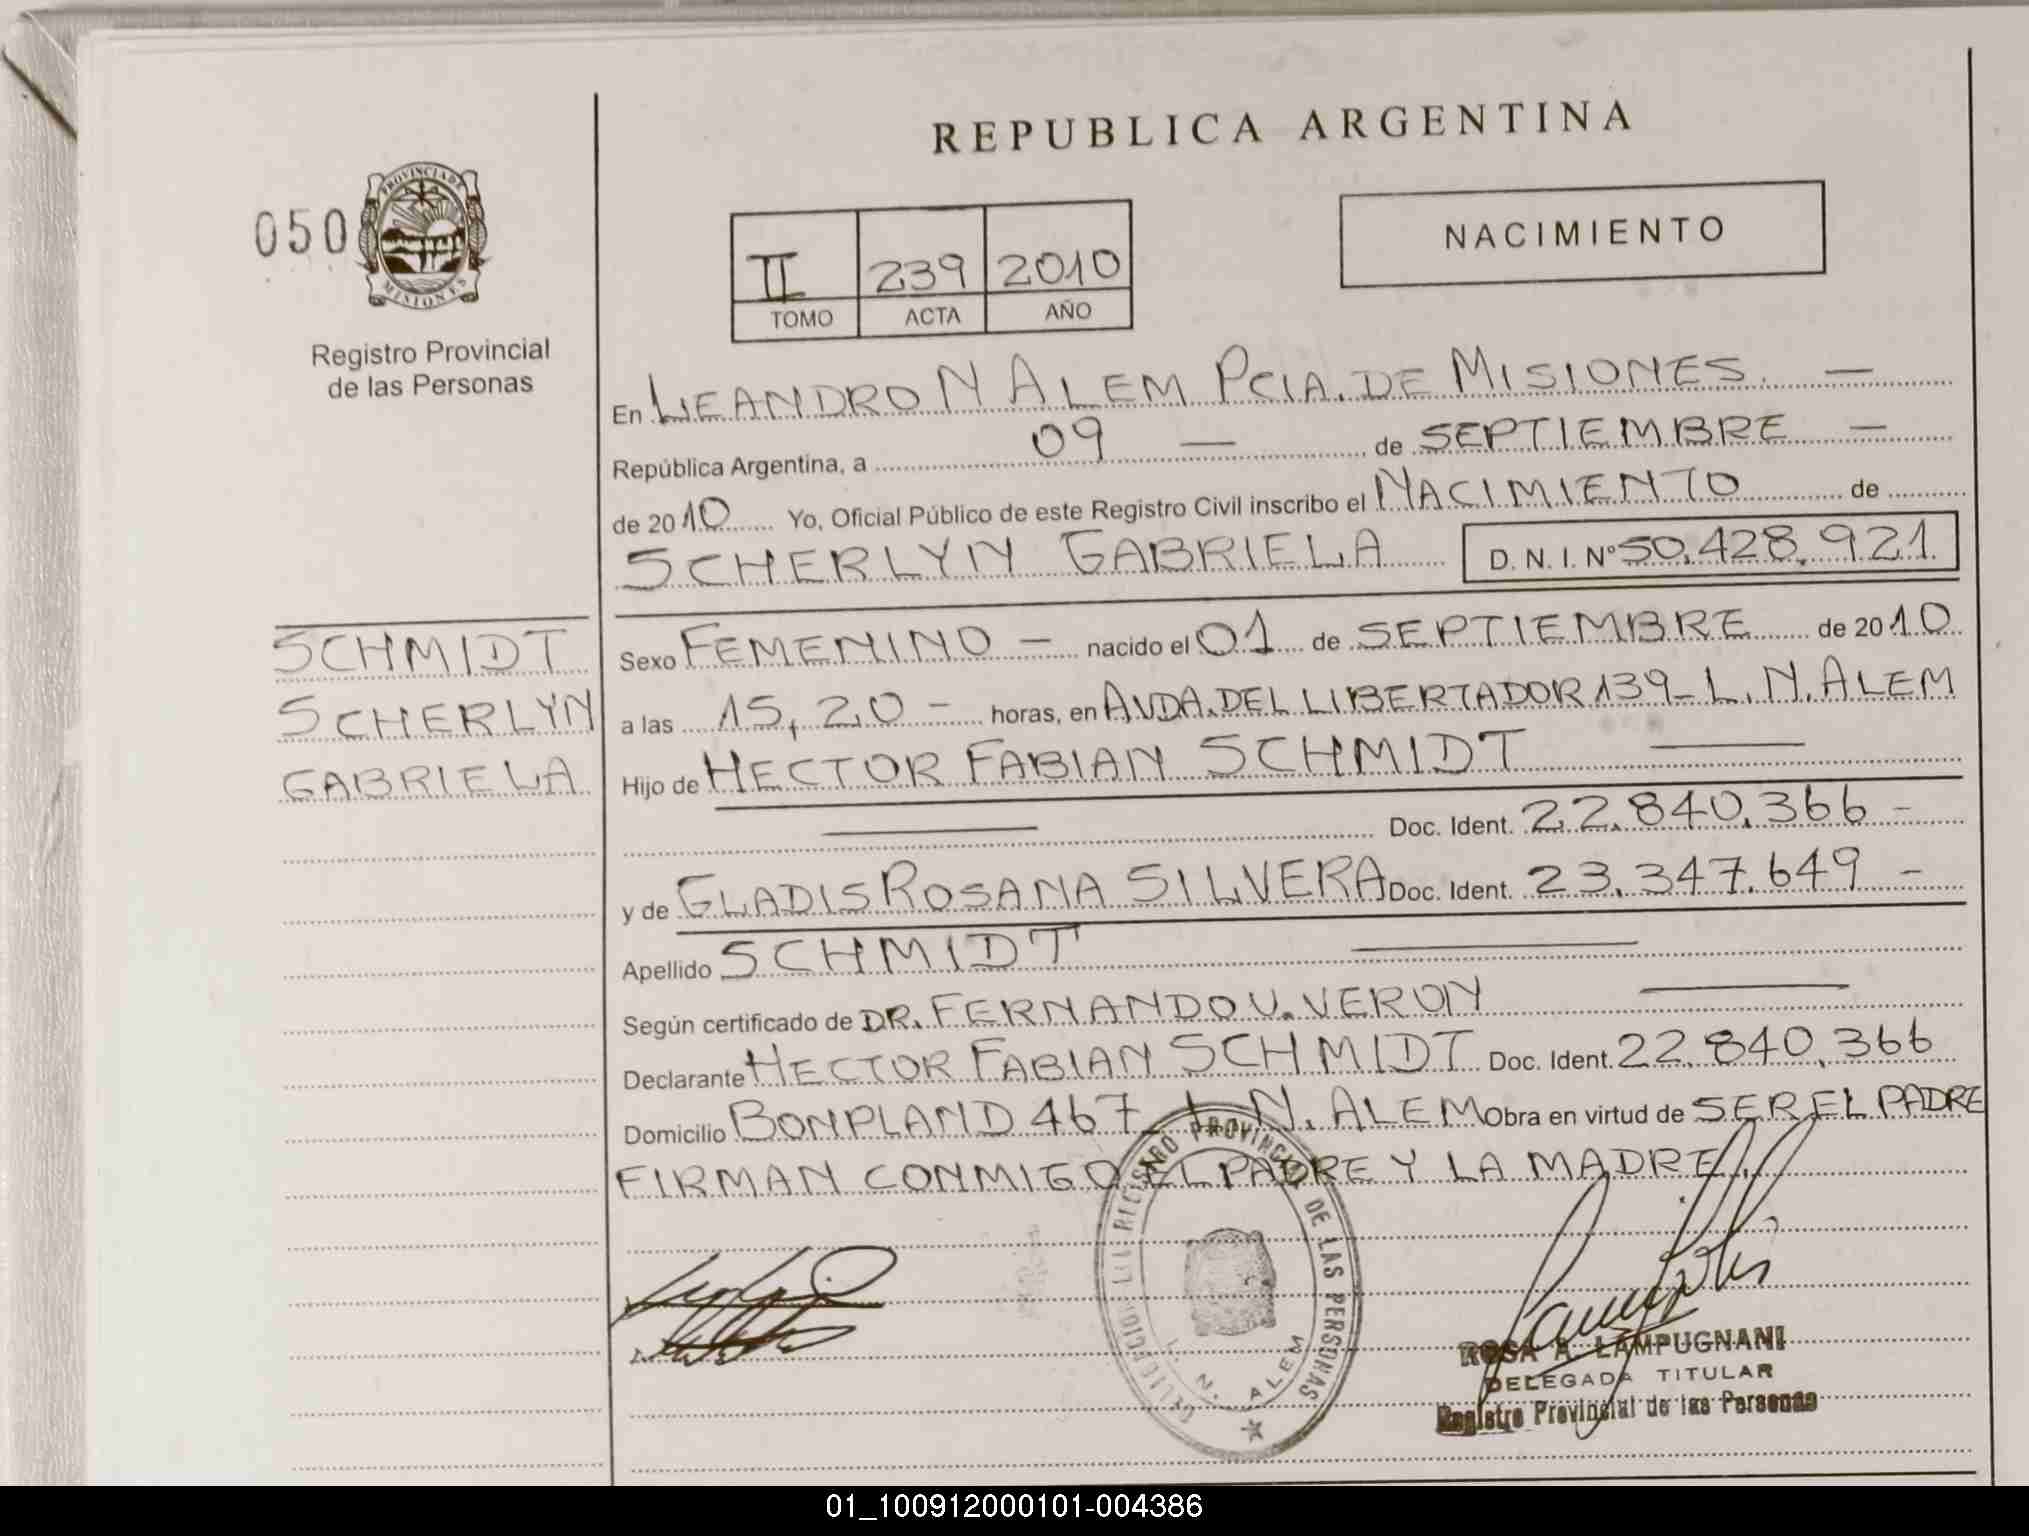 REPUBLICA ARGENTINA
050
PROVINCIA DE
MISIONES
Registro Provincial
de las Personas
II 239 2010
TOMO ACTA AÑO
NACIMIENTO
En LEANDRO N ALEM PCIA. DE MISIONES. —
República Argentina, a 09 — de SEPTIEMBRE —
de 2010 Yo, Oficial Público de este Registro Civil inscribo el NACIMIENTO de
SCHERLYN GABRIELA D. N. I. Nº 50.428.921
SCHMIDT
SCHERLYN
GABRIELA
Sexo FEMENINO — nacido el 01 de SEPTIEMBRE de 2010
a las 15,20 — horas, en AVDA. DEL LIBERTADOR 139_L.N.ALEM
Hijo de HECTOR FABIAN SCHMIDT —
— Doc. Ident. 22.840.366 -
y de GLADIS ROSANA SILVERA Doc. Ident. 23.347.649 -
Apellido SCHMIDT —
Según certificado de DR. FERNANDO V. VERON —
Declarante HECTOR FABIAN SCHMIDT Doc. Ident. 22.840.366
Domicilio BONPLAND 467_L.N.ALEM Obra en virtud de SER EL PADRE
FIRMAN CONMIGO EL PADRE Y LA MADRE.
REGISTRO PROVINCIAL DE LAS PERSONAS
L. N. ALEM
ROSA A. LAMPUGNANI
DELEGADA TITULAR
Registro Provincial de las Personas
01_100912000101-004386